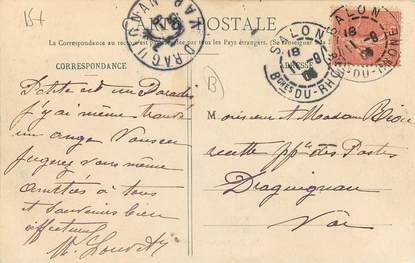 15f
CARTE POSTALE
La Correspondance au recto
pas acceptée par tous les Pays étrangers. (Se renseigner
CORRESPONDANCE
DRAGUIGNAN VAR
SALON
Bches DU-RHONE
SALON
Bches DU-RHONE
B
est un Paradis
j'y ai même trouvé
un ange Vous en
jugerez vous même
amitiés à tous
et Souvenirs bien
affectueux
Monsieur et Madame
recette des Postes
Draguignan
Var